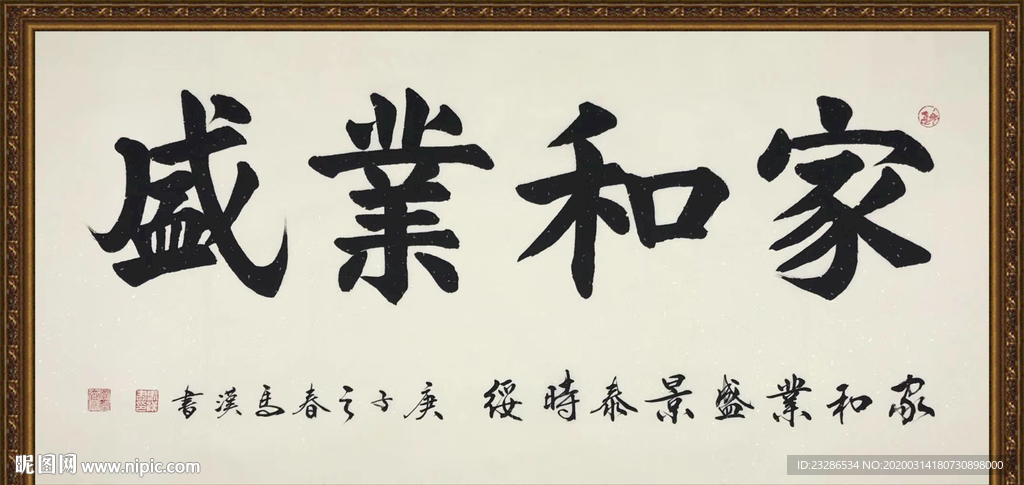 家和業盛
家和業盛景泰時綏 庚子之春馬漢書
昵图网 www.nipic.com
ID:23286534 NO:20200314180730898000